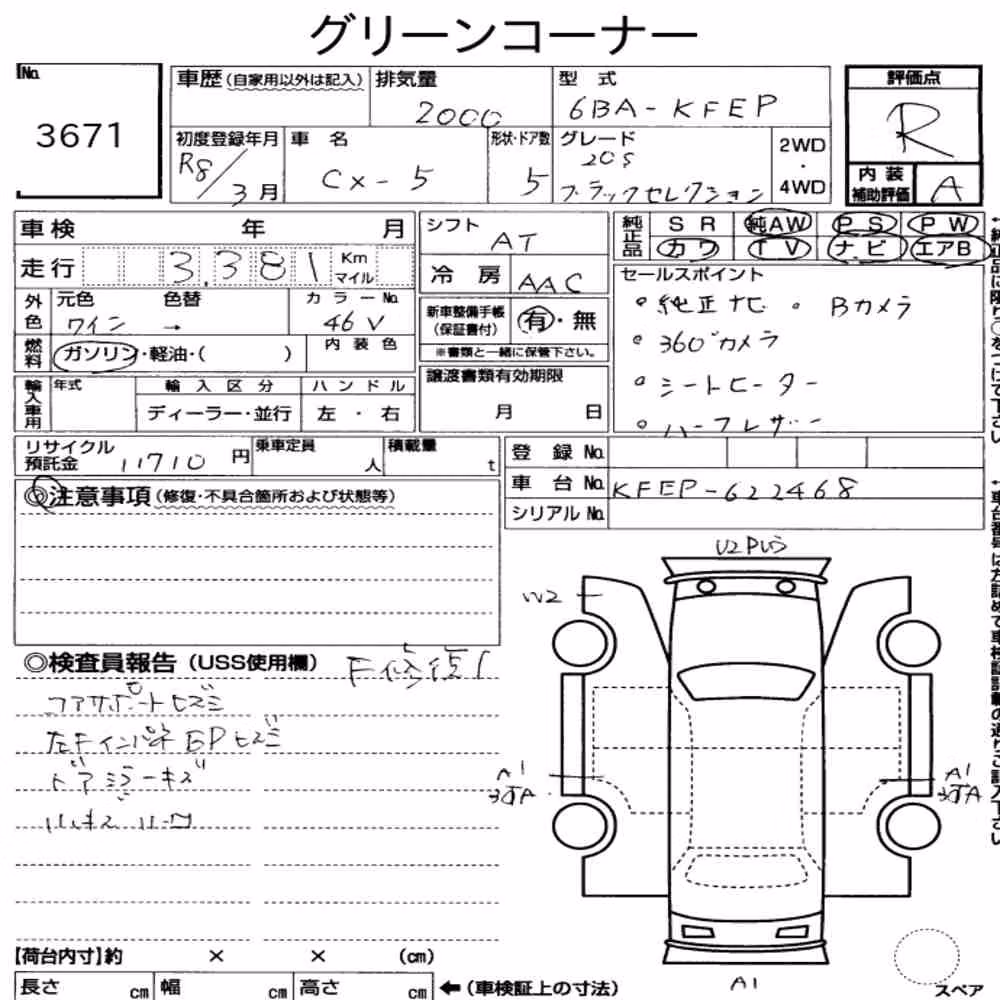 グリーンコーナー
No.
3671
車歴(自家用以外は記入)
排気量
2000
型 式
6BA-KFEP
評価点
R
初度登録年月
R8/3月
車 名
CX-5
形状・ドア数
5
グレード
20S
ブラックセレクション
2WD
・
4WD
内 装
補助評価
A
車検 年 月
走行 3,381 Km マイル
外色
元色 色替
ワイン →
カラーNo.
46V
燃料
ガソリン・軽油・( )
内 装 色
輸入車用
年式
輸 入 区 分
ディーラー・並行
ハ ン ド ル
左 ・ 右
シフト
AT
冷 房
AAC
新車整備手帳
(保証書付)
有・無
※書類と一緒に保管下さい。
譲渡書類有効期限
月 日
純正品
SR 純AW PS PW
カワ TV ナビ エアB
セールスポイント
・純正ナビ ・Bカメラ
・360°カメラ
・シートヒーター
・ハーフレザー
リサイクル
預託金 11710円
乗車定員
人
積載量
t
登 録 No.
車 台 No. KFEP-622468
シリアル No.
◎注意事項(修復・不具合箇所および状態等)
◎検査員報告(USS使用欄)
F修復1
コアサポートヒズミ
左FインパネEPヒズミ
ドアミラーキズ
U2
W2
A1
A1
A1
【荷台内寸】約 × × (cm)
長さ cm
幅 cm
高さ cm
←(車検証上の寸法)
スペア